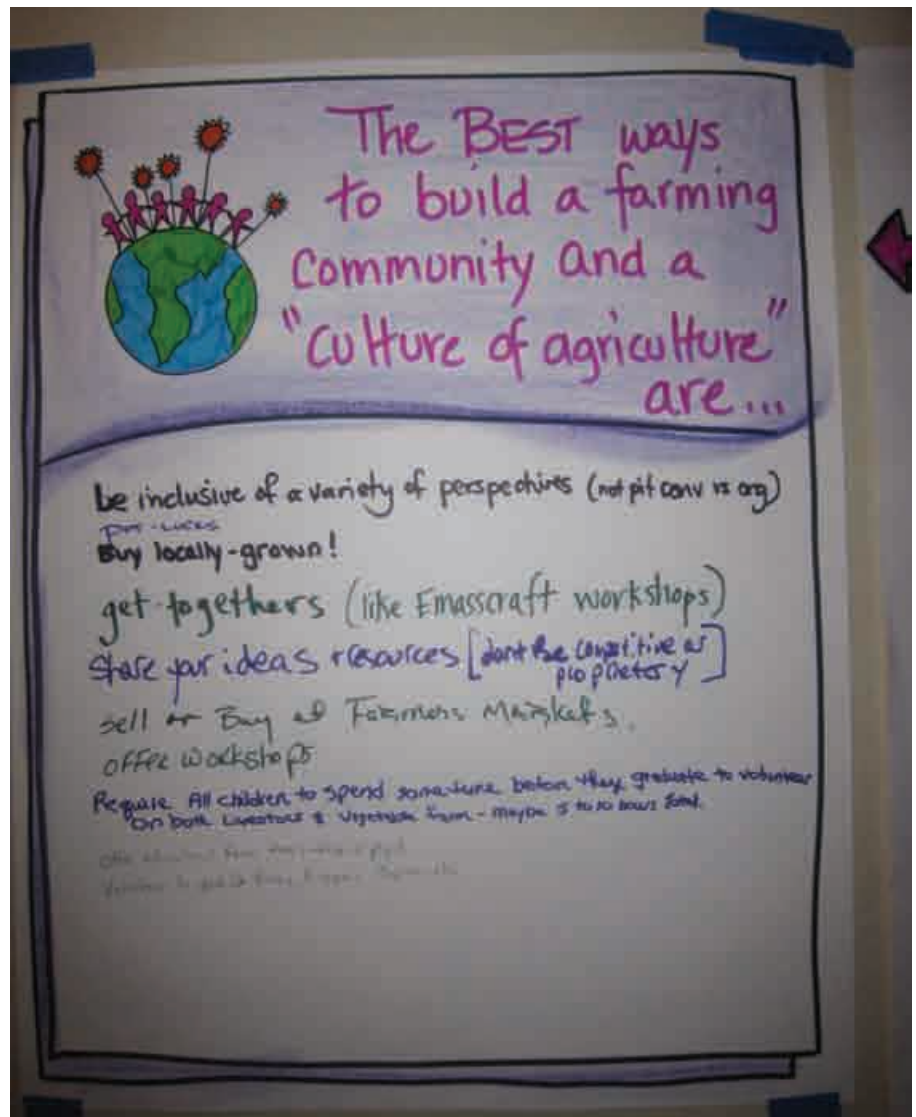 The BEST ways
to build a farming
Community and a
"culture of agriculture"
are...
be inclusive of a variety of perspectives (not pit conv vs org)
Buy locally-grown!
get-togethers (like Emasscraft workshops)
Share your ideas + resources [don't be competitive or
proprietory]
sell or Buy at Farmers Markets.
offer workshops
Require All children to spend sometime before they graduate to volunteer
On both Livestock & Vegetable farm - maybe 5 to 10 hours total.